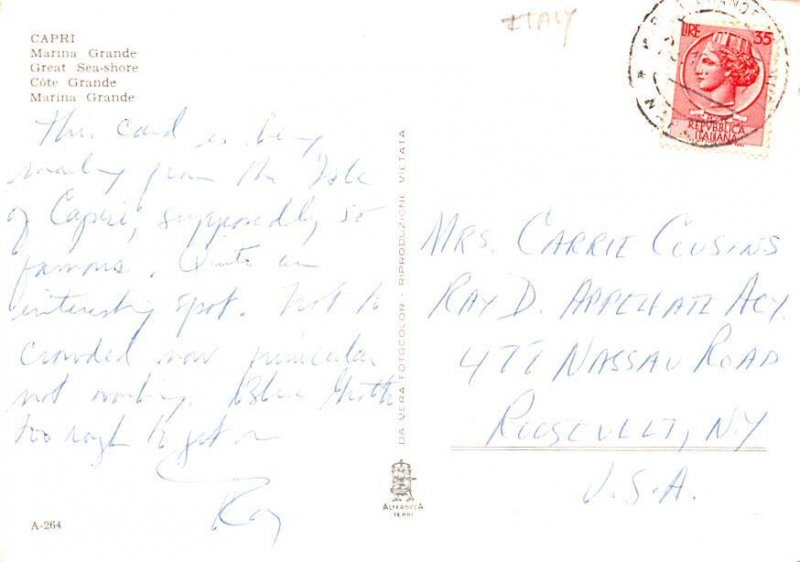 ITALY
CAPRI
Marina Grande
Great Sea-shore
Côte Grande
Marina Grande
This card is being
mailing from the Isle
of Capri, supposedly so
famous. Quite an
interesting spot. Not to
crowded now funicular
not working. Blue Grotto
too rough to get in
Ray
A-264
DA VERA FOTOCOLOR - RIPRODUZIONE VIETATA
ALTEROCCA
TERNI
LIRE 35
REPVBBLICA
ITALIANA
MRS. CARRIE COUSINS
RAY D. APPELLATE ACY.
477 NASSAU ROAD
ROOSEVELT, NY
U.S.A.